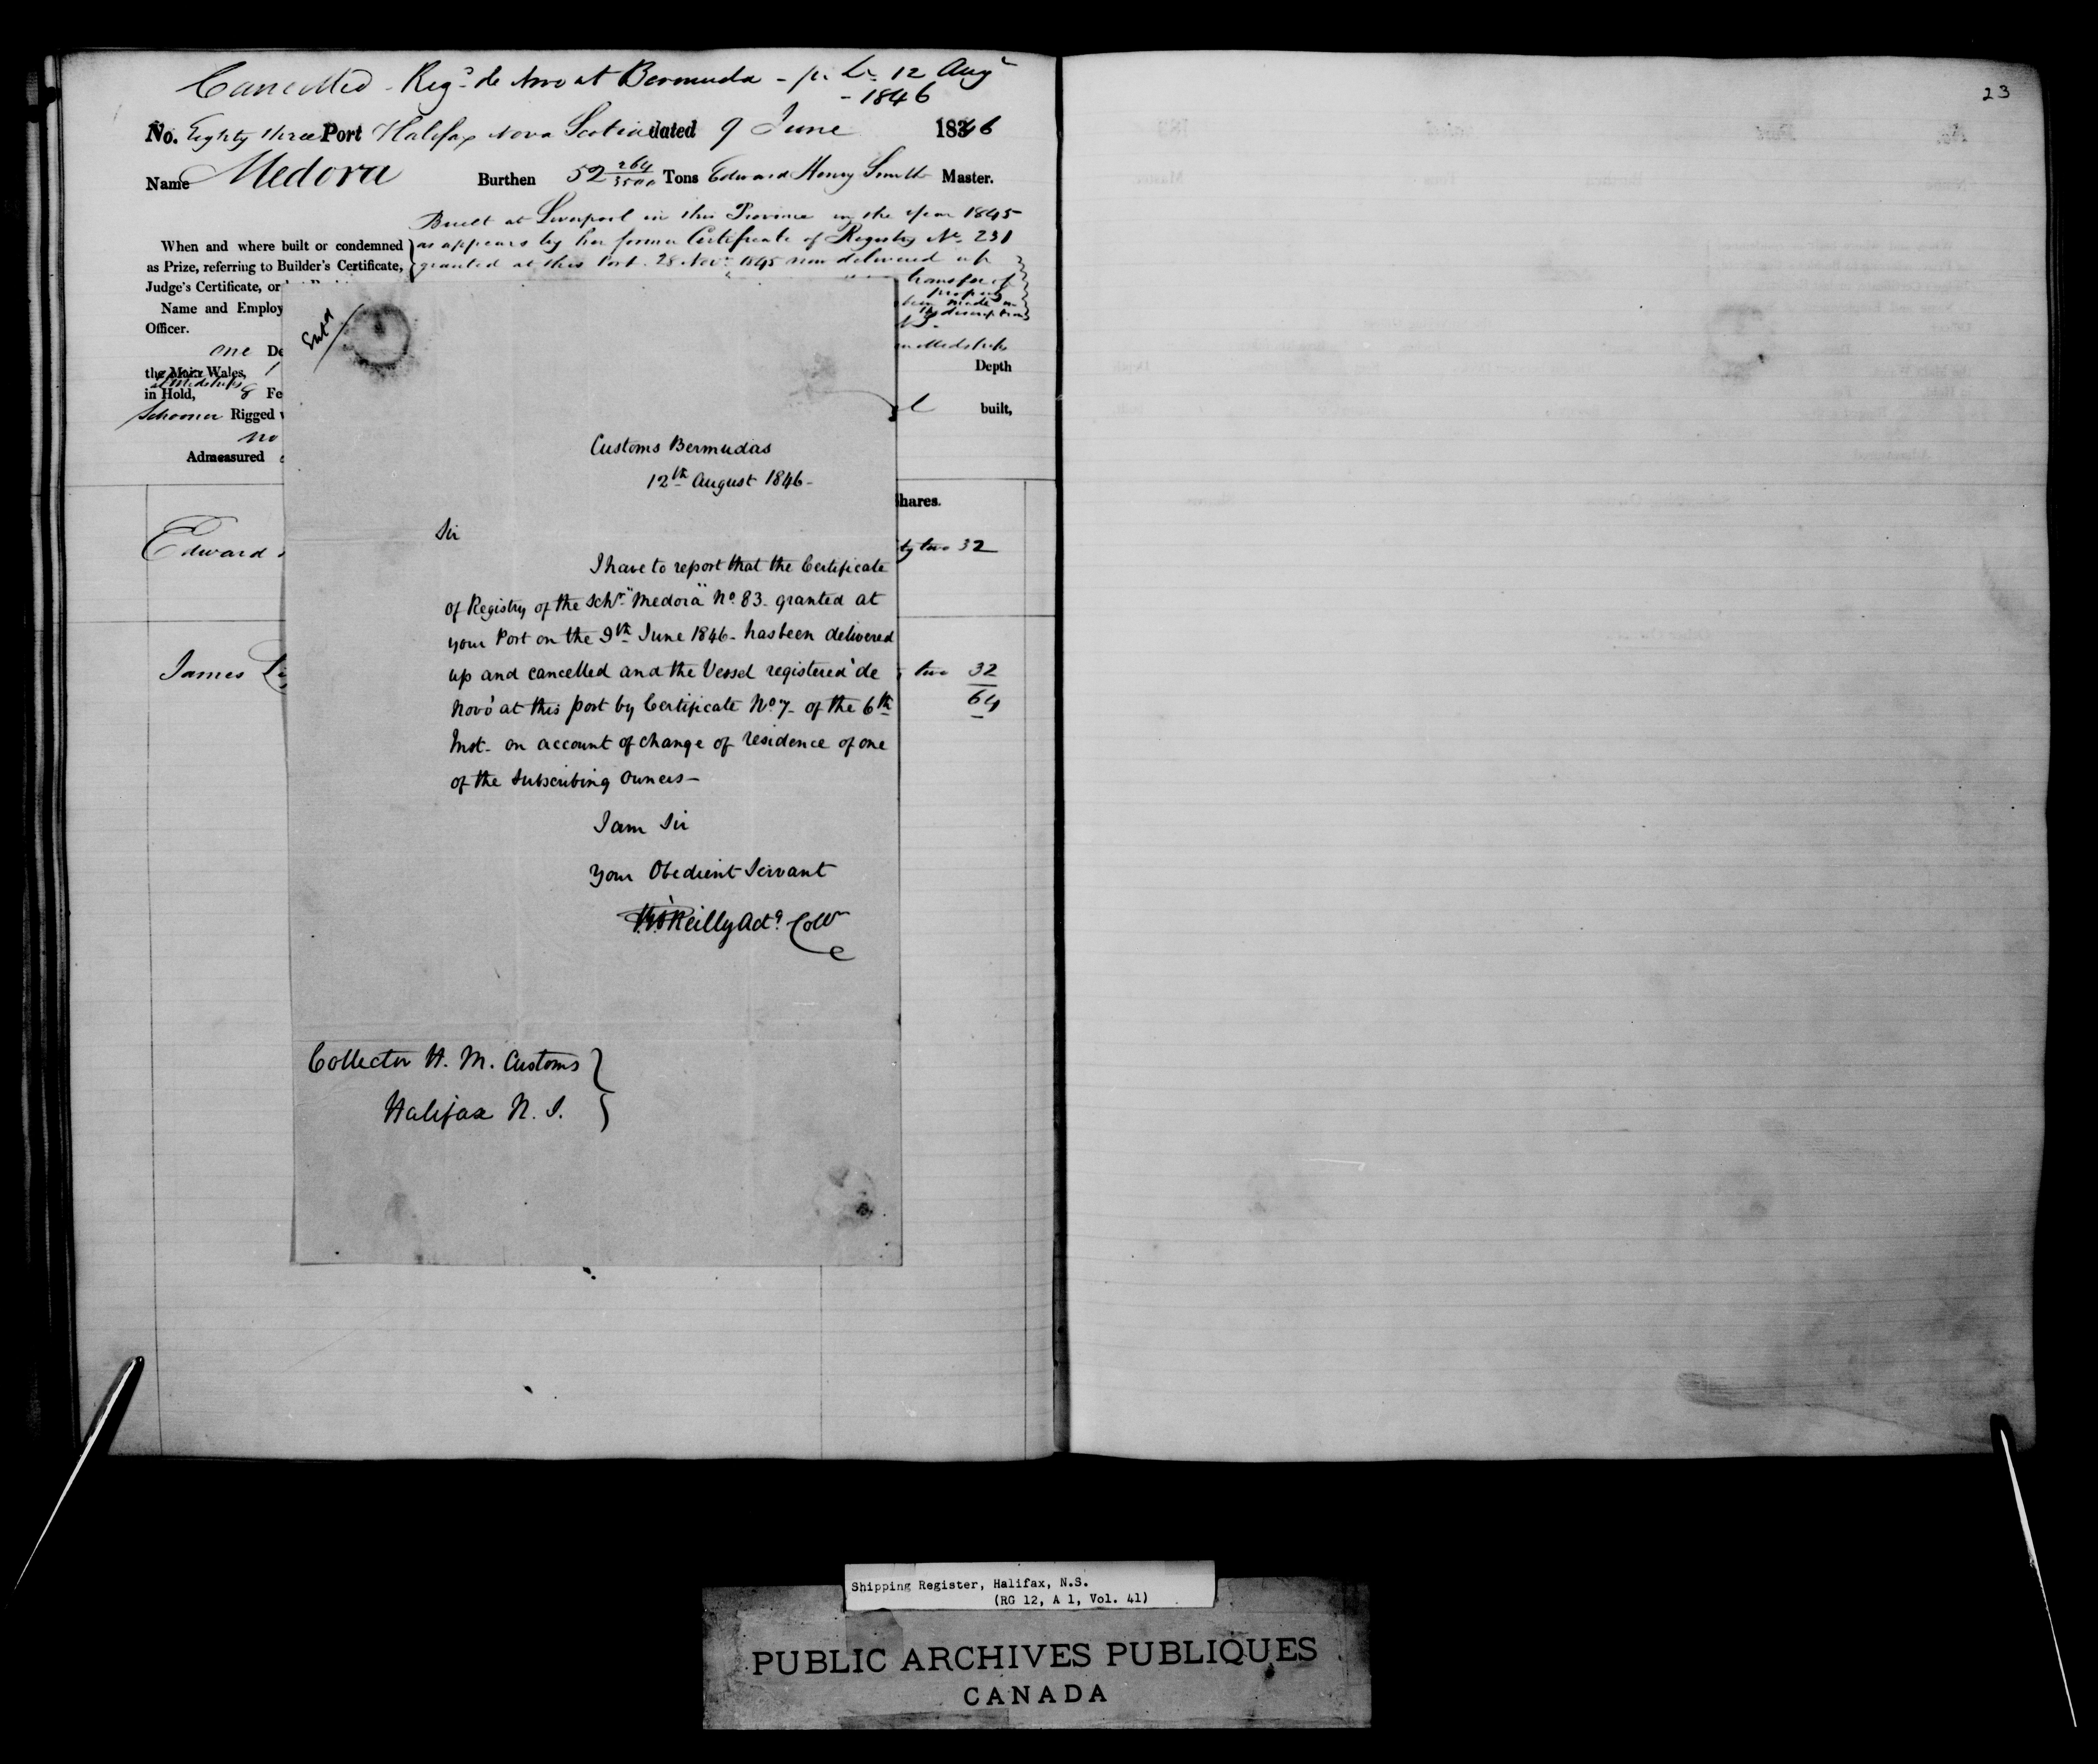 Cancelled - Regd. de novo at Bermuda - pr. Lr. 12 Augt
- 1846
No. Eighty three Port Halifax Nova Scotia dated 9 June 1846
Name Medora Burthen 52 264/3500 Tons Edward Henry Smith Master.
Built at Liverpool in this Province in the year 1845
When and where built or condemned } as appears by her former Certificate of Registry No. 231
as Prize, referring to Builder's Certificate, granted at this Port 28 Novr. 1845 now delivered up
Judge's Certificate, or transfer of
property
Name and Employ been made in
Officer. the description
one De midships
the Main Wales, Depth
at Midships
in Hold, 8 Fe
Schooner Rigged built,
no
Admeasured
Shares.
Edward ty two 32
James two 32
64
Entd
Customs Bermudas
12th August 1846-
Sir
I have to report that the Certificate
of Registry of the Schr. "Medora" No. 83. granted at
your Port on the 9th June 1846- has been delivered
up and cancelled and the Vessel registered 'de
Novo' at this port by Certificate No. 7- of the 6th
Inst- on account of change of residence of one
of the Subscribing Owners-
I am Sir
Your Obedient Servant
O'Reilly Actg Collr
Collector H. M. Customs }
Halifax N. S.
23
Shipping Register, Halifax, N.S.
(RG 12, A 1, Vol. 41)
PUBLIC ARCHIVES PUBLIQUES
CANADA